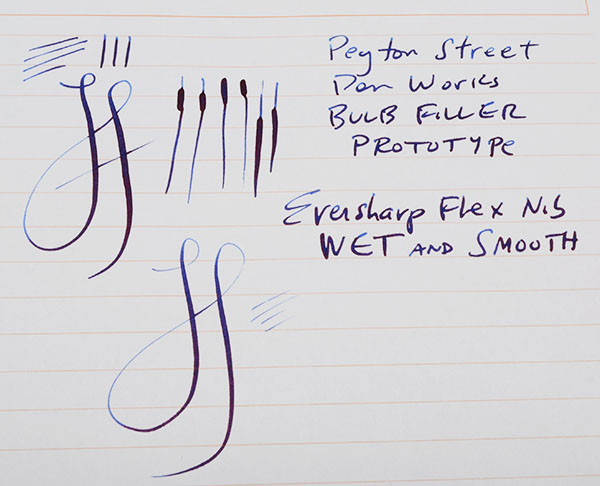 Peyton Street
Pen Works
BULB FILLER
PROTOTYPE
Eversharp Flex Nib
WET AND SMOOTH